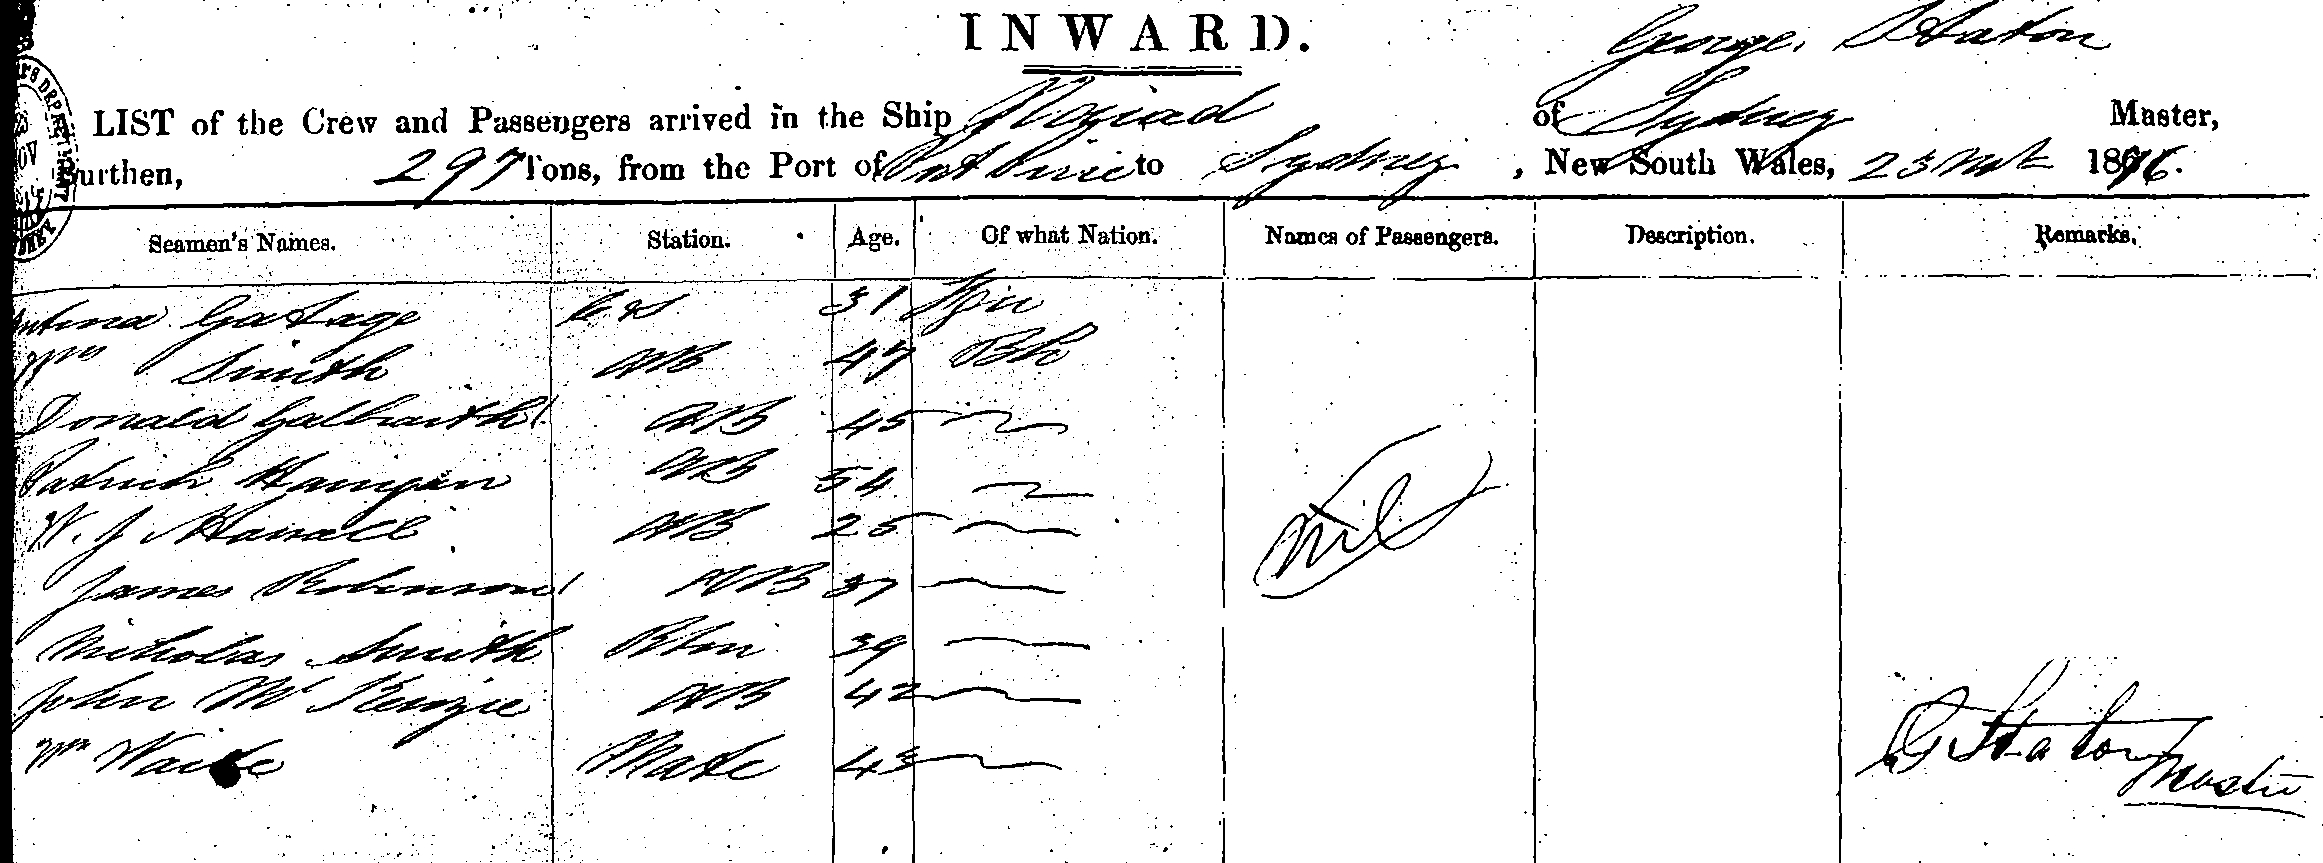 INWARD.
George Staton
LIST of the Crew and Passengers arrived in the Ship Naiad of Sydney Master,
Burthen, 297 Tons, from the Port of to Sydney, New South Wales, 23 1876.
Seamen's Names. Station. Age. Of what Nation. Names of Passengers. Description. Remarks.
31
Wm Smith AB 47 Bh
Donald Galbraith AB 45
Patrick AB 54
W. J AB 25
Nil
James Robinson AB 37
Nicholas Smith 39
John Mc Kenzie AB 42
Wm Waite Mate 43
G Staton
Master